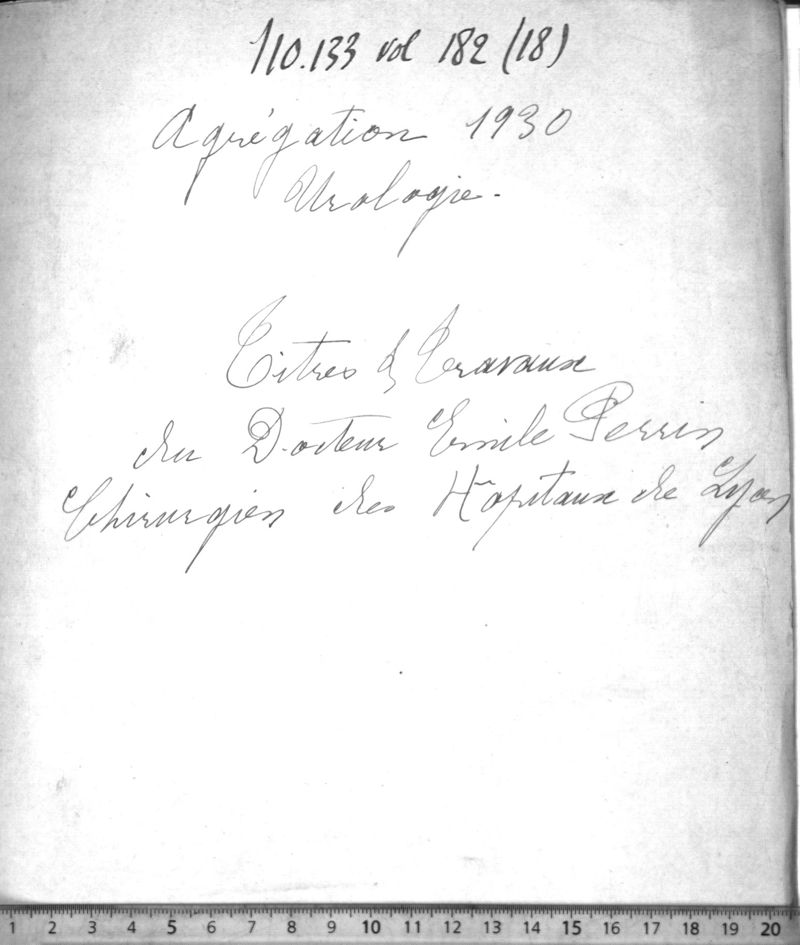 110.133 vol 182 (18)
Agrégation 1930
Urologie.
Titres & Travaux
du Docteur Emile Perrin
Chirurgien des Hôpitaux de Lyon
1 2 3 4 5 6 7 8 9 10 11 12 13 14 15 16 17 18 19 20